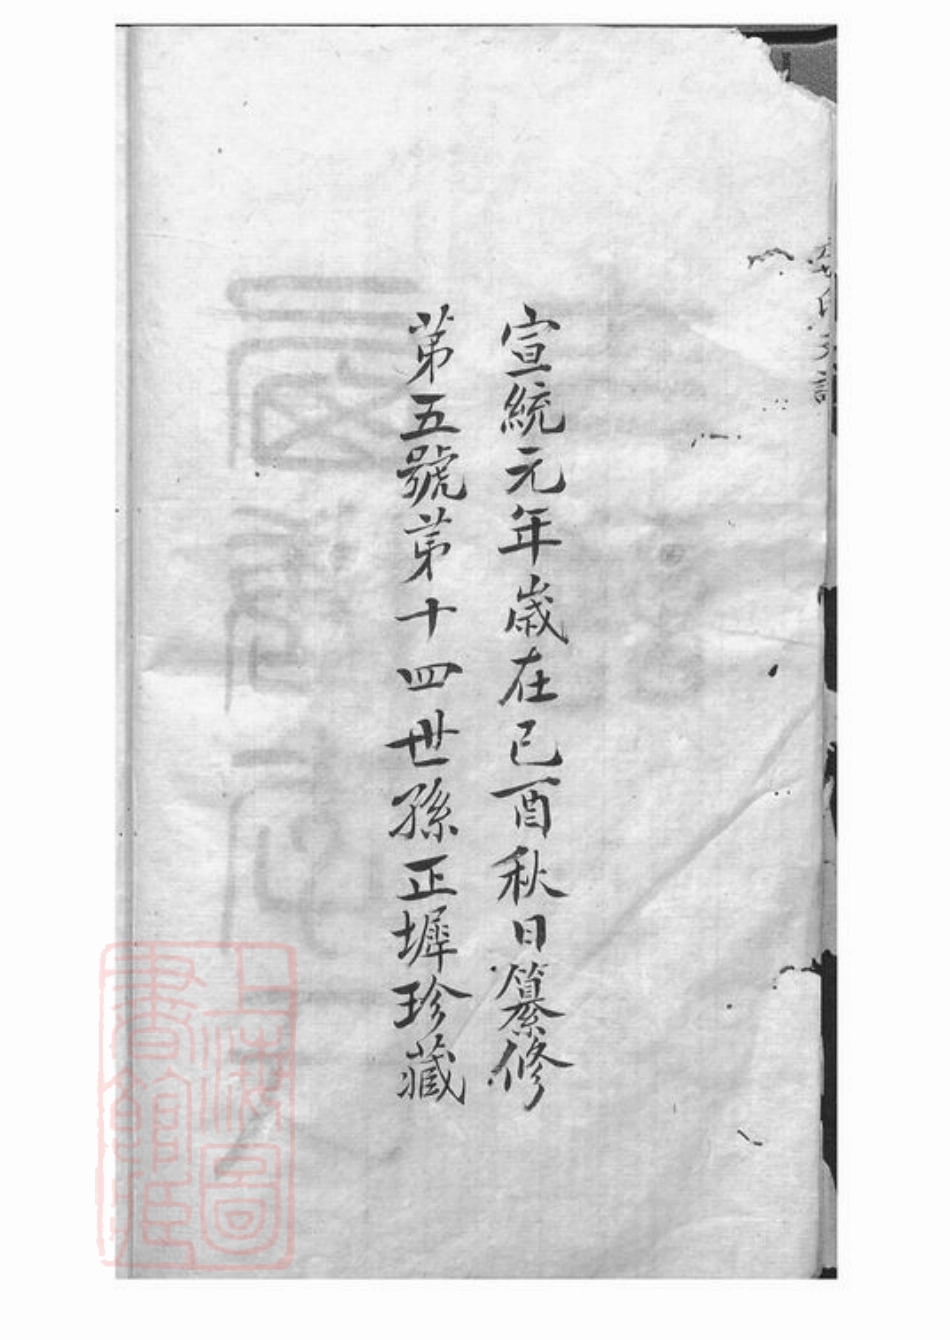 宣統元年歲在己酉秋日纂修
第五號第十四世孫正墀珍藏
上海圖
書館藏